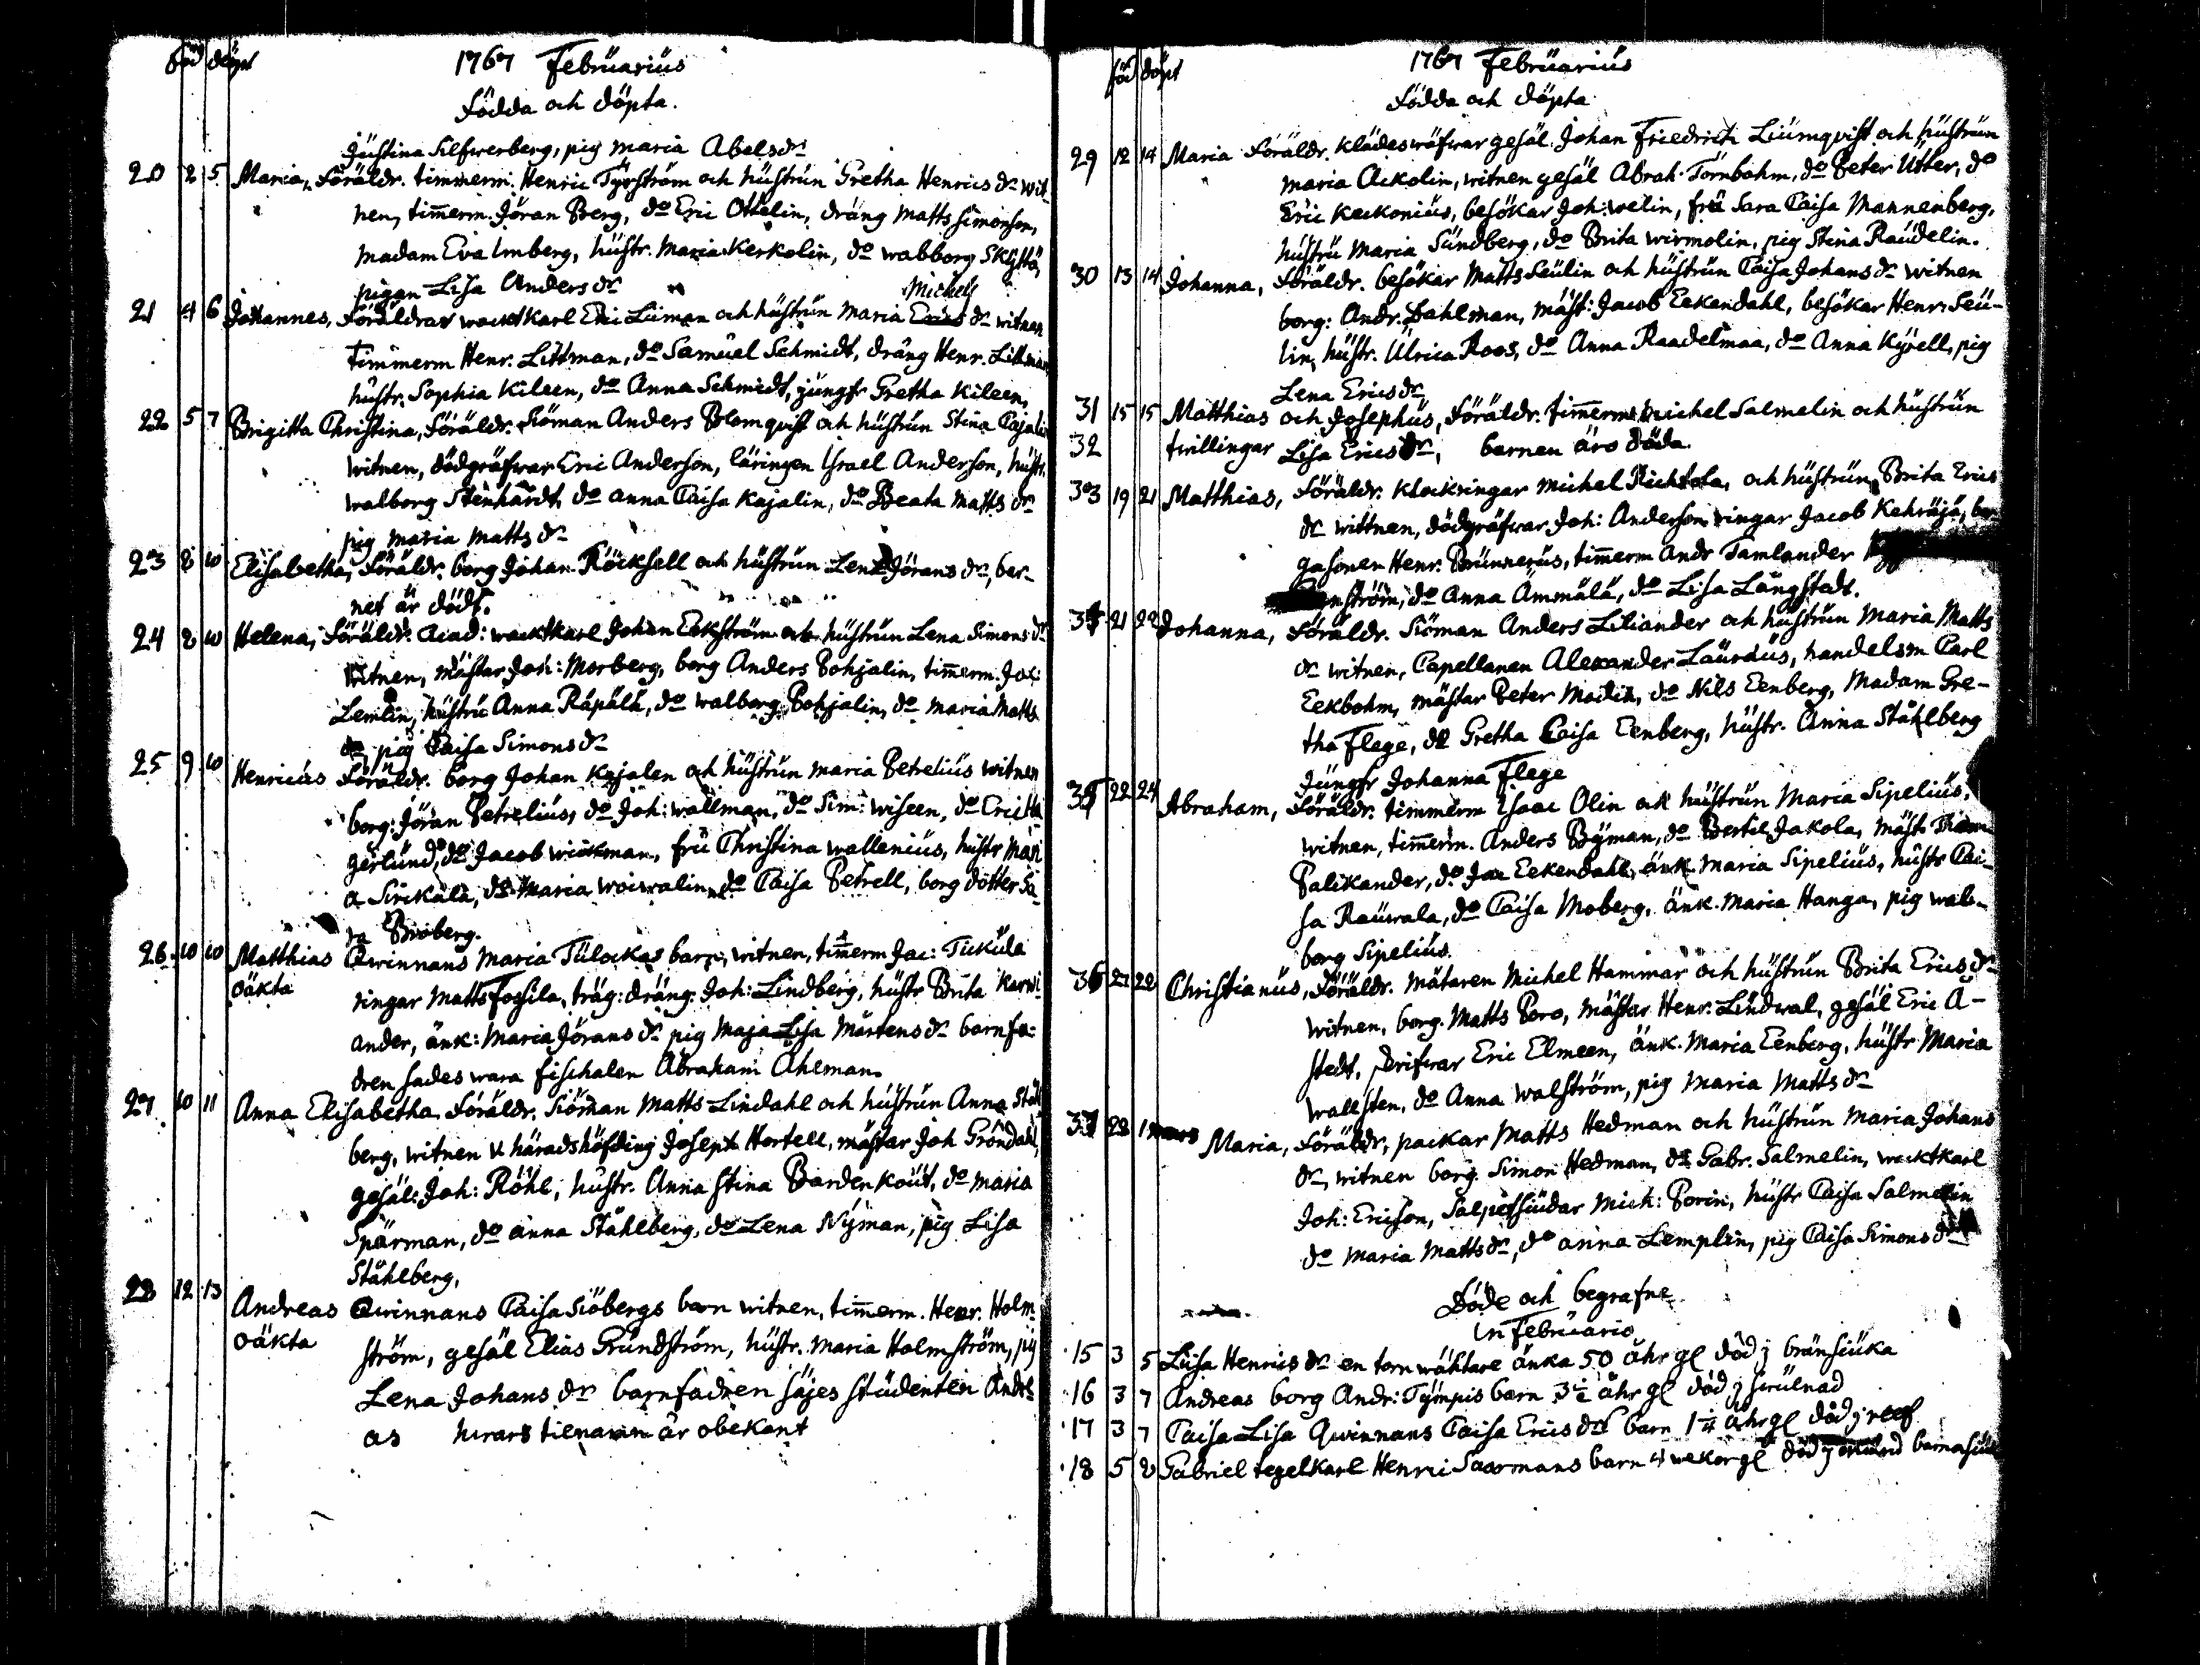 född döpt
1767 Februarius
Födda och döpta.
Justina Silfwerberg, pig Maria Abelsdr
20 2 5 Maria, Föräldr. timmerm. Henric Tyrström och hustrun Gretha Henricsdr wit-
nen, timmerm. Jöran Berg, do Eric Ottelin, dräng Matts Simonson,
Madam Eva Imberg, hustr. Maria Kerkolin, do Walborg Skyttä,
pigan Lisa Andersdr
Michels
21 4 6 Johannes, Föräldrar wacktkarl Eric Liman och hustrun Maria Erics dr witnen
Timmerm Henr. Littman, do Samuel Schmidt, dräng Henr. Littman
hustr. Sophia Kileen, do Anna Schmidt, jungfr Gretha Kileen,
22 5 7 Brigitta Christina, Föräldr. Siöman Anders Blomqvist och hustrun Stina Cajalin
witnen, dödgräfwar Eric Anderson, läringen Israel Anderson, hustr.
Walborg Stenhardt, do Anna Caisa Kajalin, do Beata Matts dr
pig Maria Matts dr
23 8 10 Elisabetha, Föräldr. borg Johan Röcksell och hustrun Lena Jörans dr, bar-
net är dödt.
24 8 10 Helena, Föräldr. Acad: wacktkarl Johan Eckström och hustrun Lena Simons dr
witnen, mästar Joh: Morberg, borg Anders Pohjalin, timmerm. Jac:
Lemlin, hustru Anna Räpälä, do Walborg Pohjalin, do Maria Matts
dr pig Caisa Simons dr
25 9 10 Henricus Föräldr. borg Johan Kajalen och hustrun Maria Petrelius witnen
borg: Jöran Petrelius, do Joh: Wallman, do Sim: Wiseen, do Eric Ha
gerlund, do Jacob Wickman, fru Christina Wallenius, hustr Mari
a Sirckälä, do Maria Woiwalin, do Caisa Petrell, borg dotter Sa
ra Broberg.
26 10 10 Matthias Qwinnans Maria Tulockas barn, witnen, timmerm Jac: Tuckula
oäkta ringar Matts Fossila, träg: dräng: Joh: Lindberg, hustr Brita Kerwi
ander, änk: Maria Jörans dr pig Maja Lisa Mårtens dr barnfa-
dren sades wara fischalen Abraham Ahlman.
27 10 11 Anna Elisabetha, Föräldr. Siöman Matts Lindahl och hustrun Anna Stål
berg, witnen V. häradshöfding Joseph Hertell, mästar Joh Gröndahl,
gesäl: Joh: Röhl, hustr. Anna Stina Barderkout, do Maria
Spärman, do Anna Ståhlberg, do Lena Nyman, pig Lisa
Ståhlberg,
28 12 13 Andreas Qwinnans Caisa Siöbergs barn witnen, timmerm. Henr. Holm-
oäkta ström, gesäl Elias Grundström, hustr. Maria Holmström, pig
Lena Johans dr barnfadren säjes studenten Andre
as hwars tilnamn är obekant
född döpt
1767 Februarius
Födda och döpta
29 12 14 Maria Föräldr. Klädeswäfwar gesäl. Johan Friedrich Liumqvist och hustrun
Maria Ackolin, witnen gesäl Abrah. Törnbohm, do Peter Utter, do
Eric Keckonius, besökar Joh: Welin, fru Sara Caisa Mannenberg,
hustru Maria Sundberg, do Brita Wirmolin, pig Stina Raudelin.
30 13 14 Johanna, Föräldr. besökar Matts Seulin och hustrun Caisa Johans dr witnen
borg: Andr. Dahlman, mäst: Jacob Eckendahl, besökar Henr: Seu-
lin, hustr. Ulrica Roos, do Anna Raadelmaa, do Anna Kyrell, pig
Lena Erics dr
31 15 15 Matthias och Josephus, Föräldr. timmerm. Michel Salmelin och hustrun
32 twillingar Lisa Erics dr, barnen äro döda.
33 19 21 Matthias, Föräldr. Klockringar Michel Richtola, och hustrun Brita Erics
dr wittnen, dödgräfwar Joh: Anderson, ringar Jacob Kehräjä, bor
gasonen Henr. Brunnerus, timmerm Andr Tamlander
nström, do Anna Ämmälä, do Lisa Långstedt.
34 21 22 Johanna, Föräldr. Siöman Anders Liliander och hustrun Maria Matts
dr witnen, Capellanen Alexander Lauraus, handelsm Carl
Eckbohm, mästar Peter Modin, do Nils Eenberg, Madam Gre-
tha Flege, do Gretha Caisa Eenberg, hustr. Anna Ståhlberg
Jungfr Johanna Flege
35 22 24 Abraham, Föräldr. timmerm Isaac Olin och hustrun Maria Sipelius,
witnen, timmerm. Anders Byman, do Bertil Jakola, mäst.
Palikander, do Jac Eckendahl, änk. Maria Sipelius, hustr Cai-
sa Rauwala, do Caisa Moberg, änk. Maria Hanga, pig wal-
borg Sipelius.
36 22 22 Christianus, Föräldr. mätaren Michel Hammar och hustrun Brita Erics dr
witnen, borg. Matts Poro, mästar Henr: Lindwal, gesäl Eric A-
stedt, skrifwar Eric Elmeen, änk. Maria Eenberg, hustr Maria
Wallsten, do Anna Walström, pig Maria Matts dr
37 28 1 mars Maria, Föräldr, packar Matts Hedman och hustrun Maria Johans
dr, witnen borg. Simon Hedman, do Gabr. Salmelin, wacktkarl
Joh: Ericson, Salpetsiudar Mich: Porin, hustr Caisa Salmelin
do Maria Matts dr, do Anna Lemplin, pig Caisa Simons dr
Döde och begrafne
in Februario
15 3 5 Lisa Henrics dr en torn wäktare änka 50 åhr gl död j bränsiuka
16 3 7 Andreas borg Andr: Tympis barn 3½ åhr gl död j swulnad
17 3 7 Caisa Lisa Qwinnans Caisa Erics drs barn 1¼ åhr gl död j
18 5 8 Gabriel tegelkarl Henric Saxmans barn 4 wekor gl död j barnasiuk